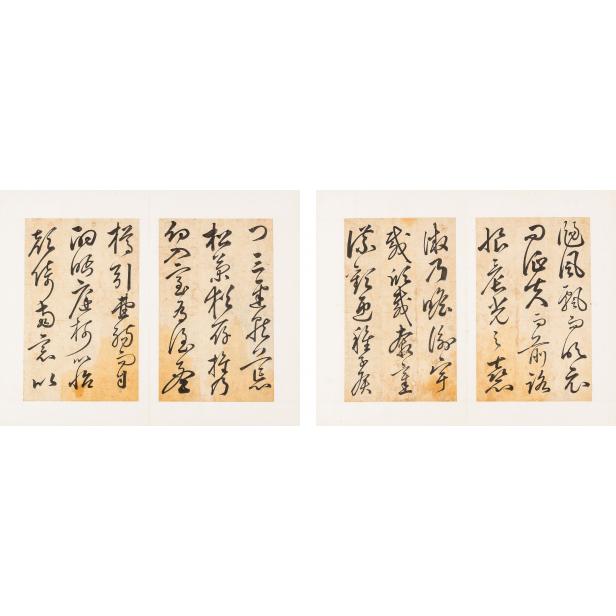 颺風飄飄而吹衣
問征夫以前路
恨晨光之熹
微乃瞻衡宇
載欣載奔僮
僕歡迎稚子候
門三逕就荒
松菊猶存攜
幼入室有酒盈
樽引壺觴以自
酌眄庭柯以怡
顏倚南窓以